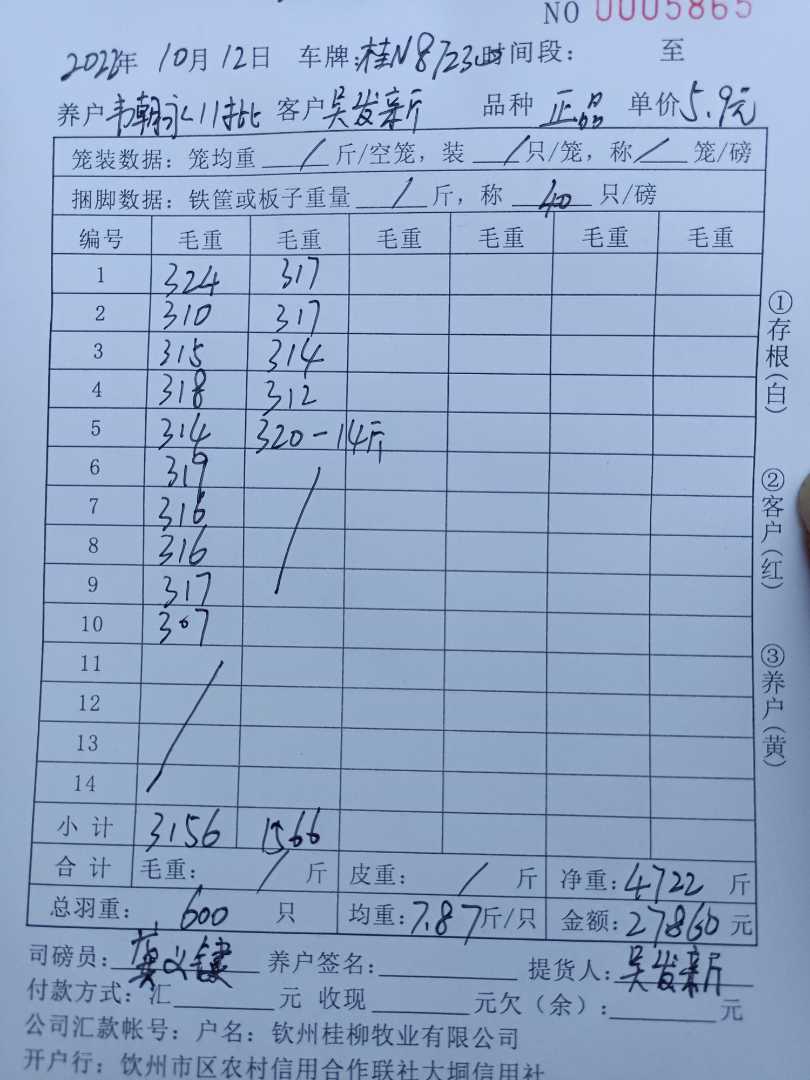 NO 0005865
2022年 10月 12日 车牌:桂N8723 时间段: 至
养户 韦朝永11批 客户 吴发新 品种 正品 单价 5.9元
笼装数据: 笼均重 / 斤/空笼, 装 / 只/笼, 称 / 笼/磅
捆脚数据: 铁筐或板子重量 / 斤, 称 40 只/磅
编号 毛重 毛重 毛重 毛重 毛重 毛重
1 324 317
2 310 317
3 315 314
4 318 312
5 314 320-14斤
6 319
7 316
8 316
9 317
10 307
11
12
13
14
小计 3156 1566
合计 毛重: / 斤 皮重: / 斤 净重: 4722 斤
总羽重: 600 只 均重: 7.87 斤/只 金额: 27860 元
司磅员: 养户签名: 提货人: 吴发新
付款方式: 汇 元 收现 元欠(余): 元
公司汇款帐号: 户名: 钦州桂柳牧业有限公司
开户行: 钦州市区农村信用合作联社大垌信用社
①存根(白)
②客户(红)
③养户(黄)